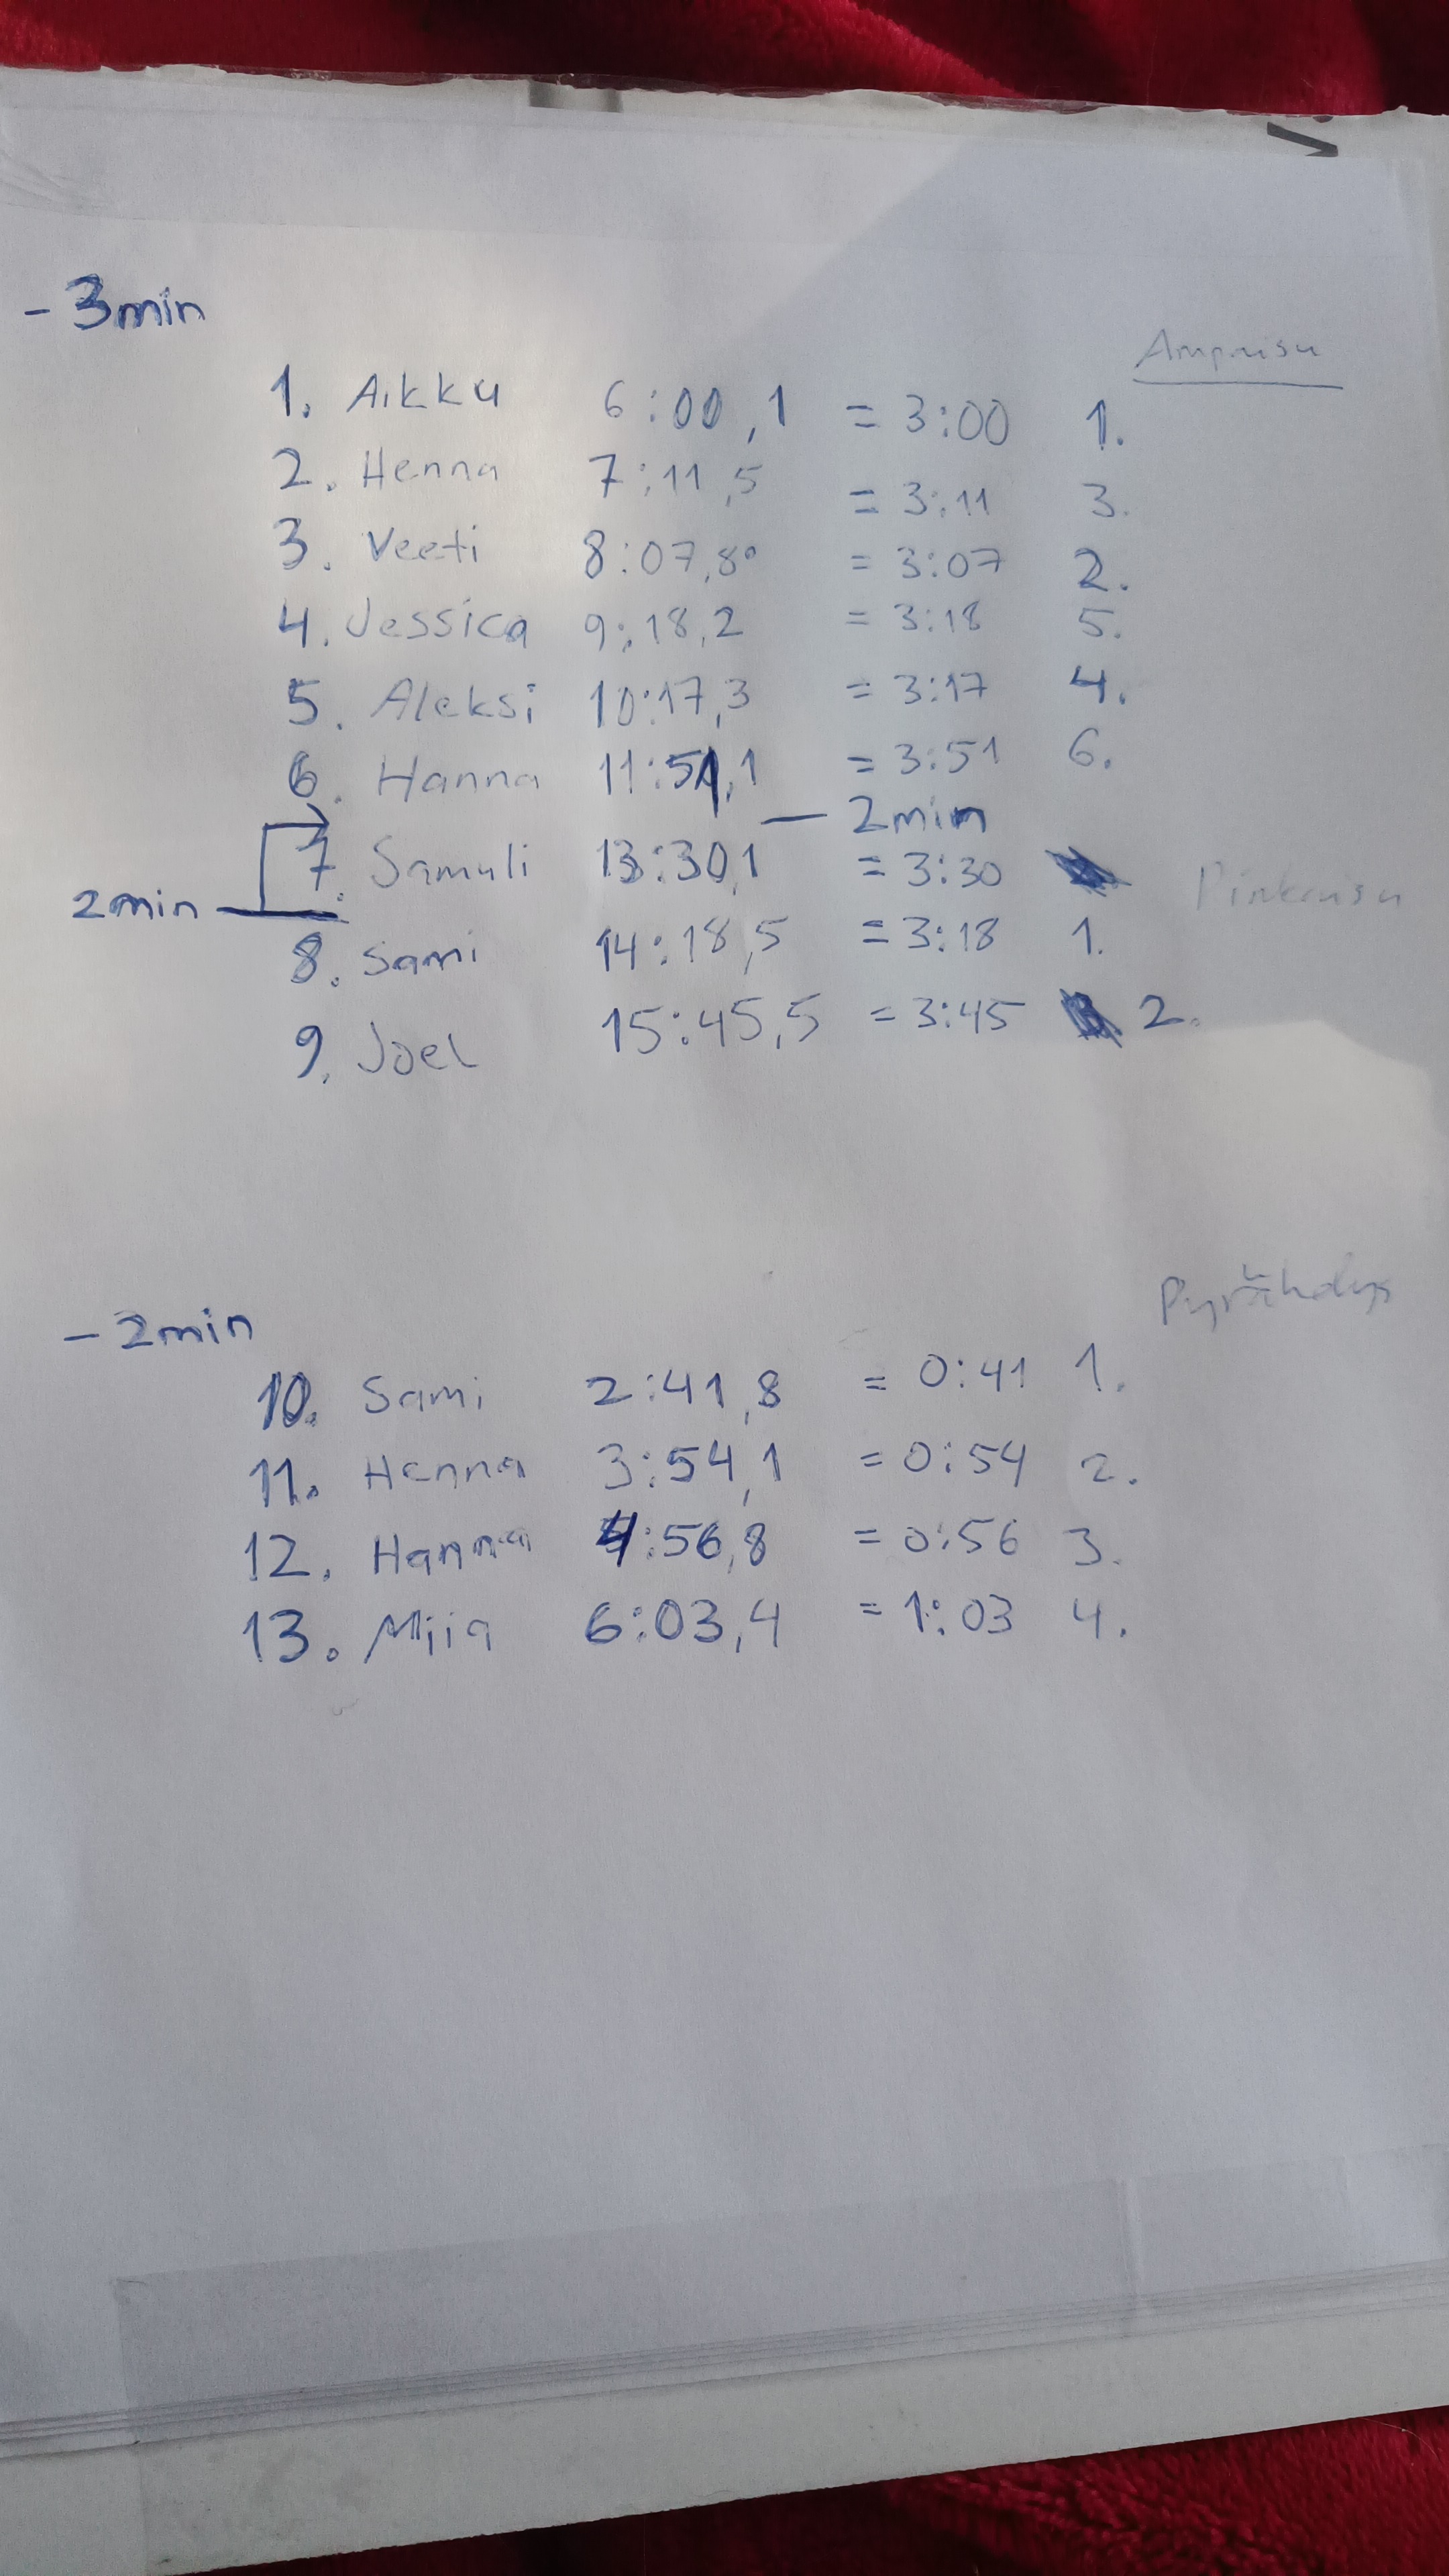 - 3min
Ampaisu
1. Aikku 6:00,1 = 3:00 1.
2. Henna 7:11,5 = 3:11 3.
3. Veeti 8:07,8 = 3:07 2.
4. Jessica 9:18,2 = 3:18 5.
5. Aleksi 10:17,3 = 3:17 4.
6. Hanna 11:51,1 = 3:51 6.
- 2min
7. Samuli 13:30,1 = 3:30
2min
8. Sami 14:18,5 = 3:18 1.
9. Joel 15:45,5 = 3:45 2.
Pyrähdys
- 2min
10. Sami 2:41,8 = 0:41 1.
11. Henna 3:54,1 = 0:54 2.
12. Hanna 4:56,8 = 0:56 3.
13. Miia 6:03,4 = 1:03 4.